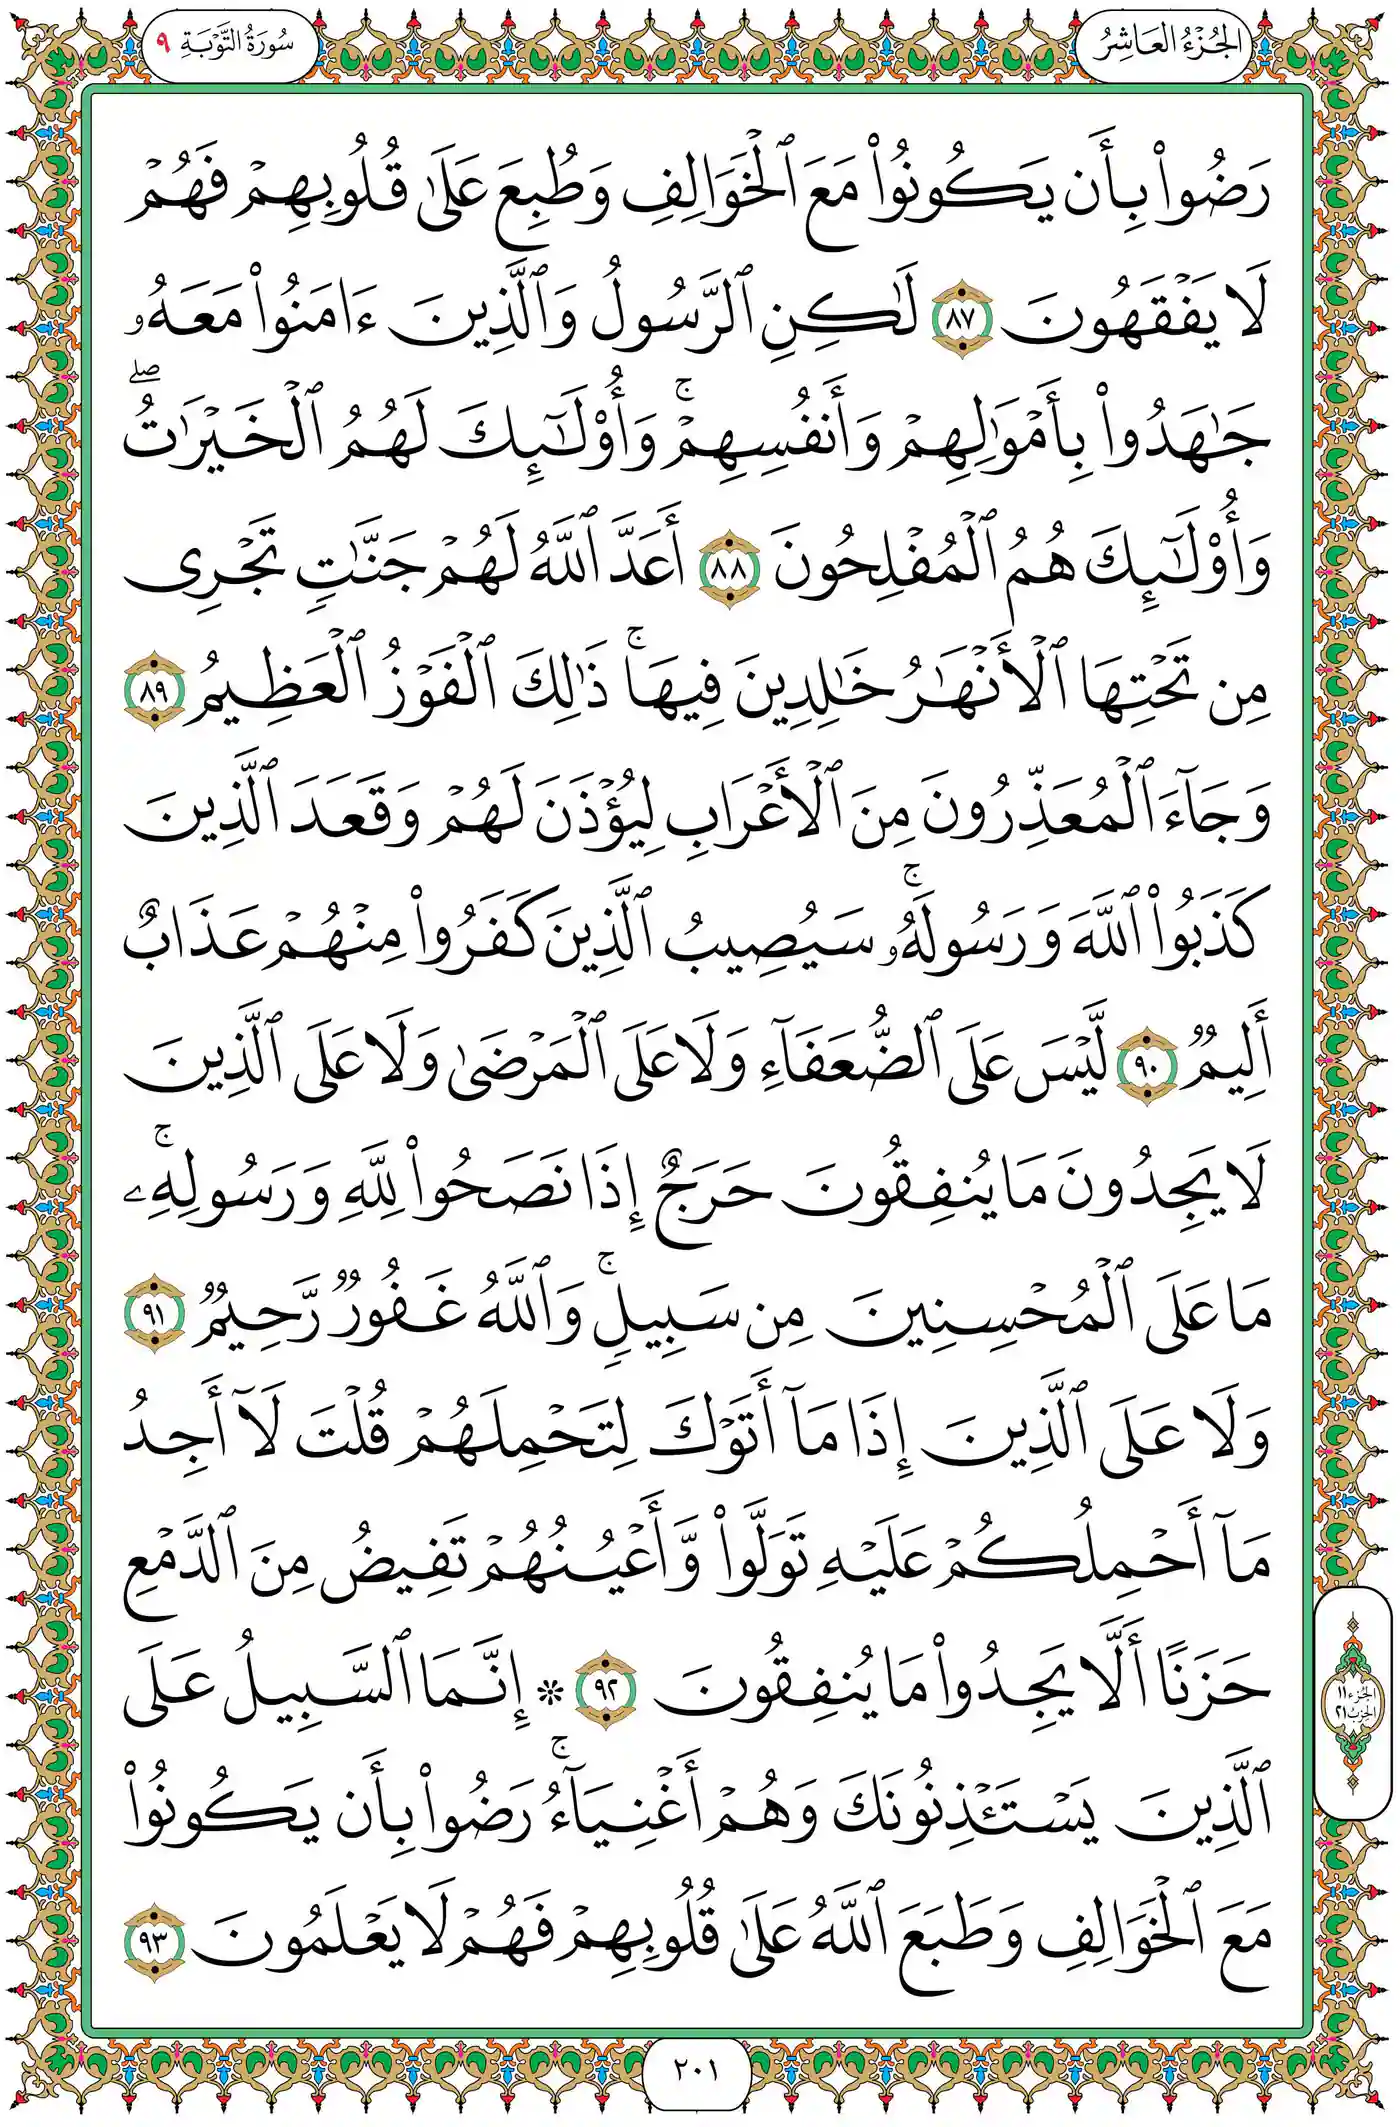 الجُزْءُ العَاشِرُ
سُورَةُ التَّوْبَةِ ٩
رَضُوا۟ بِأَن يَكُونُوا۟ مَعَ ٱلْخَوَالِفِ وَطُبِعَ عَلَىٰ قُلُوبِهِمْ فَهُمْ
لَا يَفْقَهُونَ ٨٧ لَـٰكِنِ ٱلرَّسُولُ وَٱلَّذِينَ ءَامَنُوا۟ مَعَهُۥ
جَـٰهَدُوا۟ بِأَمْوَٰلِهِمْ وَأَنفُسِهِمْ ۚ وَأُو۟لَـٰٓئِكَ لَهُمُ ٱلْخَيْرَٰتُ ۖ
وَأُو۟لَـٰٓئِكَ هُمُ ٱلْمُفْلِحُونَ ٨٨ أَعَدَّ ٱللَّهُ لَهُمْ جَنَّـٰتٍ تَجْرِى
مِن تَحْتِهَا ٱلْأَنْهَـٰرُ خَـٰلِدِينَ فِيهَا ۚ ذَٰلِكَ ٱلْفَوْزُ ٱلْعَظِيمُ ٨٩
وَجَآءَ ٱلْمُعَذِّرُونَ مِنَ ٱلْأَعْرَابِ لِيُؤْذَنَ لَهُمْ وَقَعَدَ ٱلَّذِينَ
كَذَبُوا۟ ٱللَّهَ وَرَسُولَهُۥ ۚ سَيُصِيبُ ٱلَّذِينَ كَفَرُوا۟ مِنْهُمْ عَذَابٌ
أَلِيمٌ ٩٠ لَّيْسَ عَلَى ٱلضُّعَفَآءِ وَلَا عَلَى ٱلْمَرْضَىٰ وَلَا عَلَى ٱلَّذِينَ
لَا يَجِدُونَ مَا يُنفِقُونَ حَرَجٌ إِذَا نَصَحُوا۟ لِلَّهِ وَرَسُولِهِۦ ۚ
مَا عَلَى ٱلْمُحْسِنِينَ مِن سَبِيلٍ ۚ وَٱللَّهُ غَفُورٌ رَّحِيمٌ ٩١
وَلَا عَلَى ٱلَّذِينَ إِذَا مَآ أَتَوْكَ لِتَحْمِلَهُمْ قُلْتَ لَآ أَجِدُ
مَآ أَحْمِلُكُمْ عَلَيْهِ تَوَلَّوا۟ وَّأَعْيُنُهُمْ تَفِيضُ مِنَ ٱلدَّمْعِ
حَزَنًا أَلَّا يَجِدُوا۟ مَا يُنفِقُونَ ٩٢ * إِنَّمَا ٱلسَّبِيلُ عَلَى
ٱلَّذِينَ يَسْتَـْٔذِنُونَكَ وَهُمْ أَغْنِيَآءُ ۚ رَضُوا۟ بِأَن يَكُونُوا۟
مَعَ ٱلْخَوَالِفِ وَطَبَعَ ٱللَّهُ عَلَىٰ قُلُوبِهِمْ فَهُمْ لَا يَعْلَمُونَ ٩٣
الجزء ١١
الحزب ٢١
٢٠١